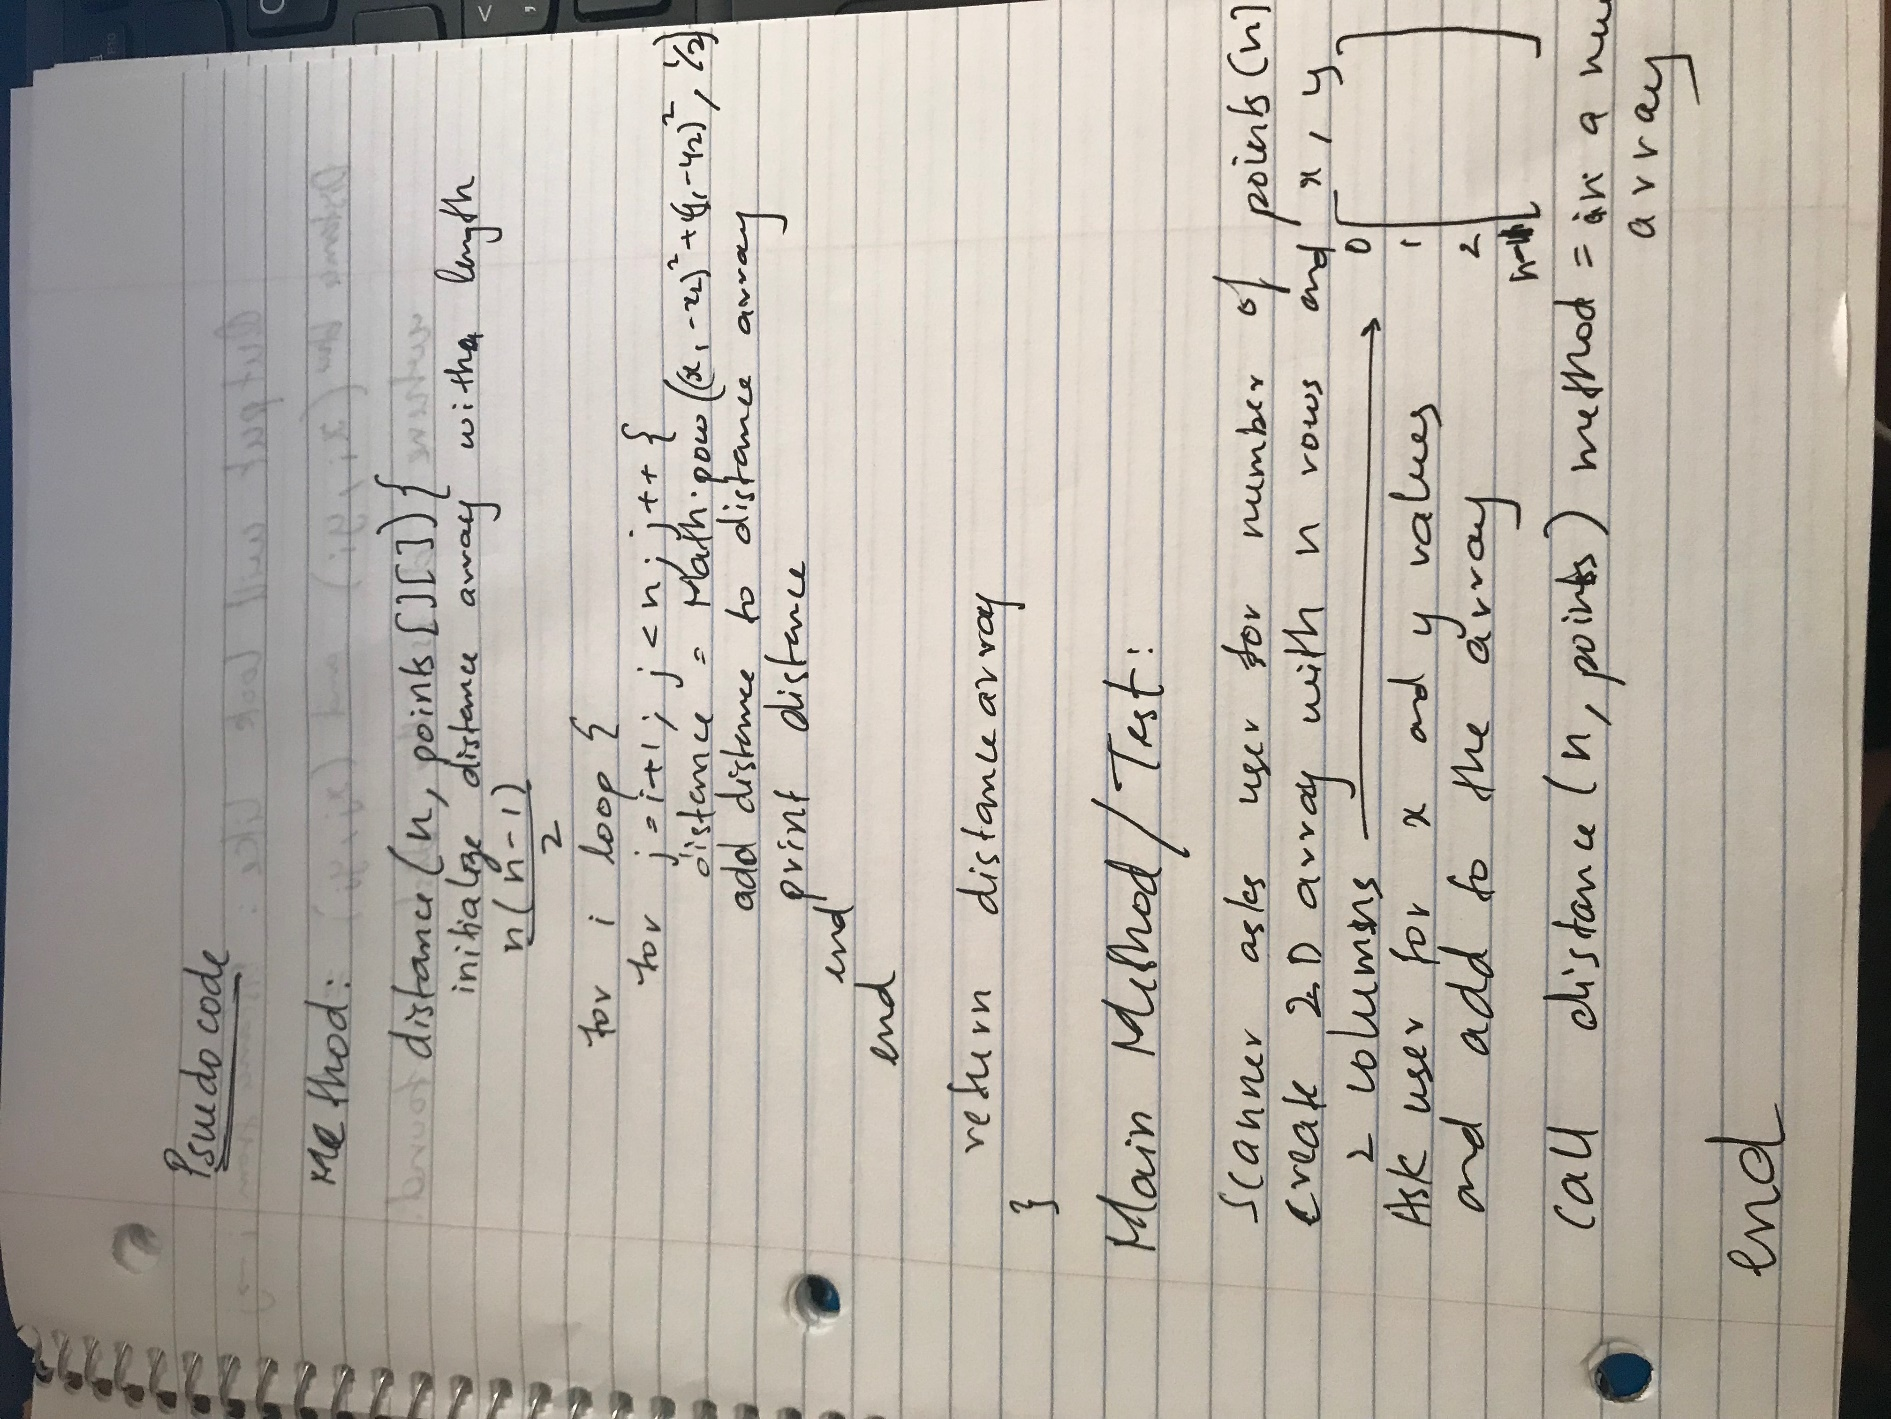 Psuedo code
Method:
distance (n, points [][]) {
initialize distance array with a length
n(n-1)
2
for i loop {
for j=i+1; j<n; j++ {
distance = Math.pow((x₁-x₂)²+(y₁-y₂)², 1/2)
add distance to distance array
print distance
end
end
return distance array
}
Main Method / Test:
Scanner asks user for number of points (n)
Create 2D array with n rows and x, y
2 columns → 0
Ask user for x and y values 1
and add to the array 2
n-1
Call distance (n, points) method = in a
array
end